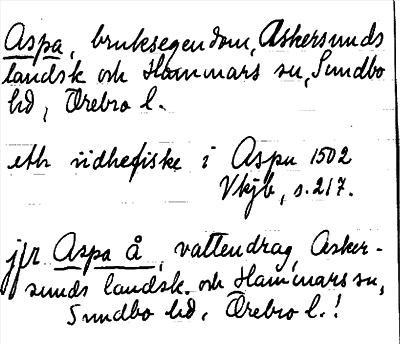 Aspa, bruksegendom, Askersunds
landsk och Hammars sn, Sundbo
hd, Örebro l.
eth sidhefiske i Aspu 1502
Vkjb, s. 217.
jfr Aspa å, vattendrag, Asker-
sunds landsk. och Hammars sn,
Sundbo hd, Örebro l.!